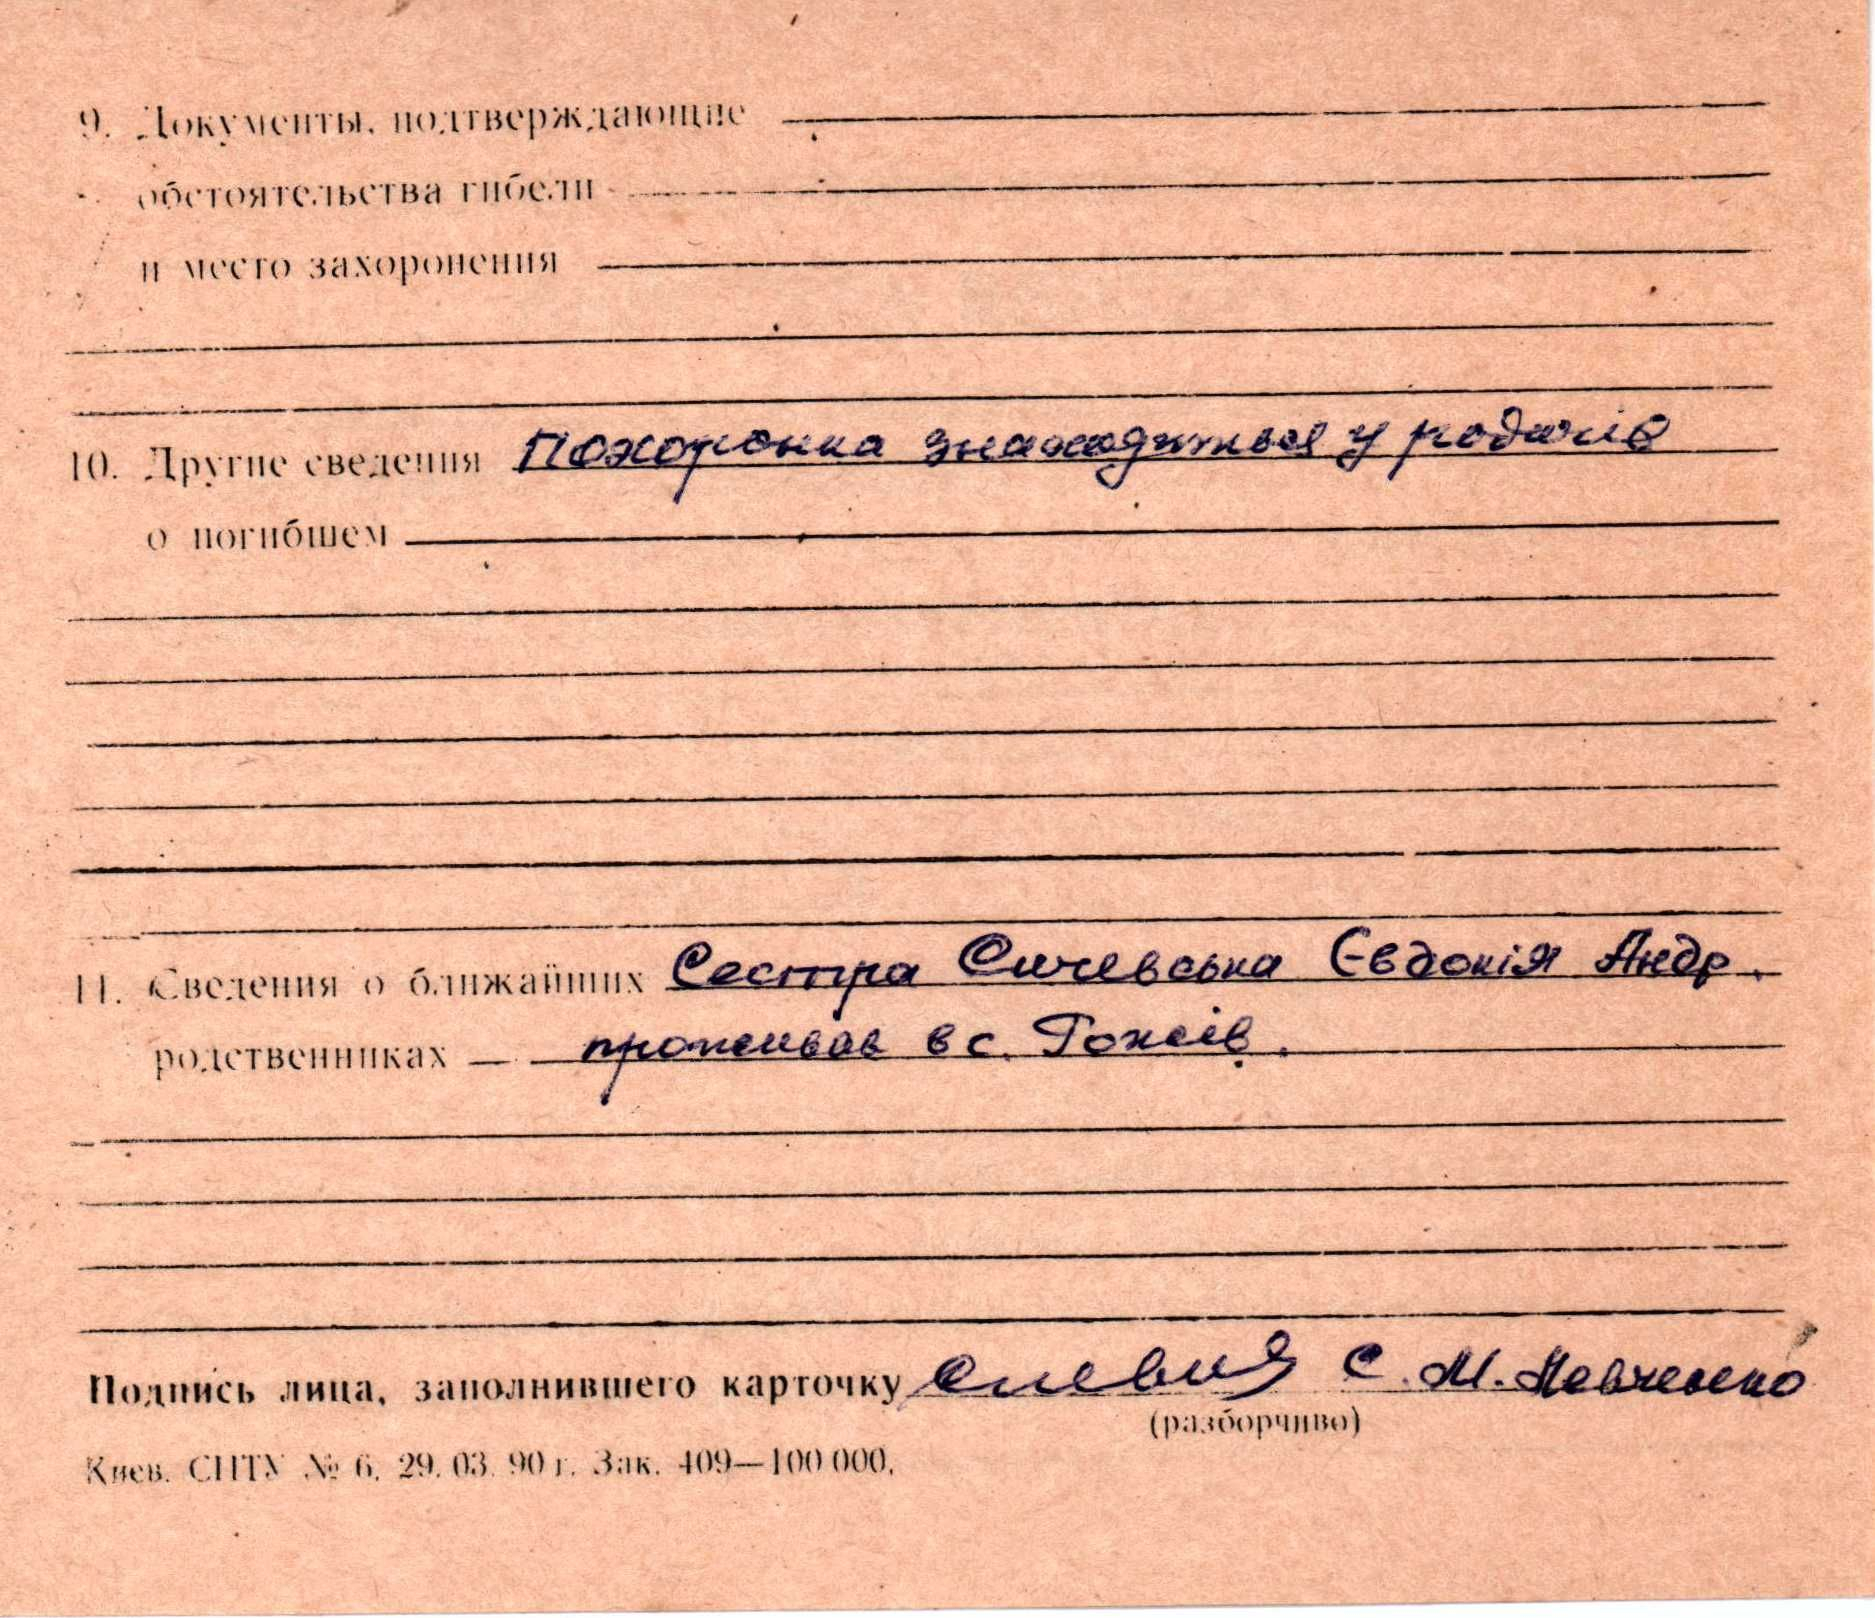 9. Документы, подтверждающие
обстоятельства гибели
и место захоронения
10. Другие сведения Похоронка знаходиться у родичів
о погибшем
11. Сведения о ближайших Сестра Сичевська Євдокія Андр.
родственниках — проживав в с. Гожів.
Подпись лица, заполнившего карточку С. М. Левченко
(разборчиво)
Киев. СПТУ № 6. 29. 03. 90 г. Зак. 409—100 000.